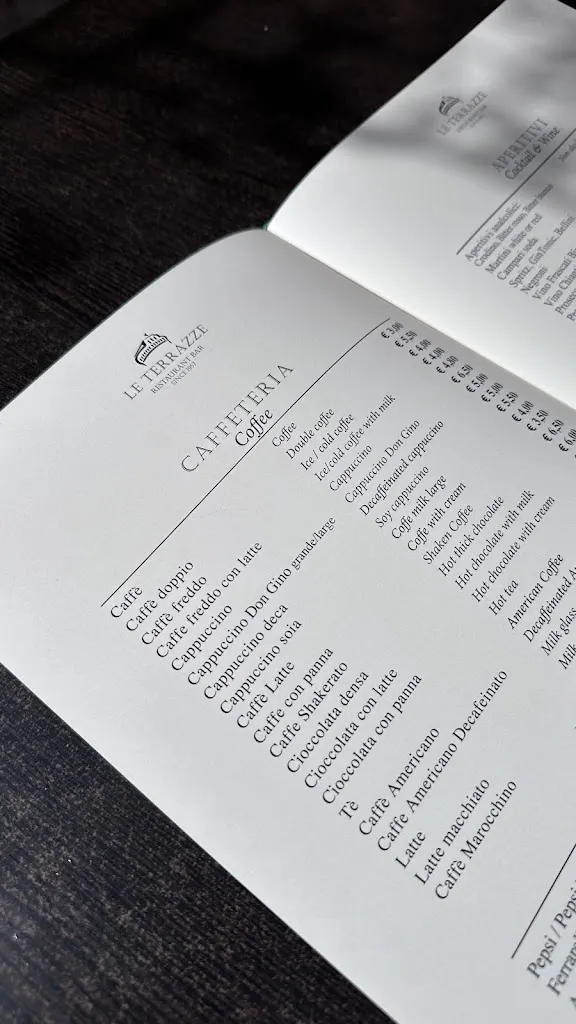 LE TERRAZZE
RESTAURANT BAR
SINCE 1951
CAFFETERIA
Coffee
Caffè Coffee € 3,00
Caffè doppio Double coffee € 5,50
Caffè freddo Ice / cold coffee € 4,00
Caffe freddo con latte Ice/cold coffee with milk € 4,00
Cappuccino Cappuccino
Cappuccino Don Gino grande/large Cappuccino Don Gino € 6,50
Cappuccino deca Decaffeinated cappuccino € 5,00
Cappuccino soia Soy cappuccino
Caffè Latte Coffe milk large
Caffe con panna Caffe with cream
Caffe Shakerato Shaken Coffee
Cioccolata densa Hot thick chocolate
Cioccolata con latte Hot chocolate with milk
Cioccolata con panna Hot chocolate with cream
Tè Hot tea
Caffè Americano American Coffee
Caffe Americano Decafeinato Decaffeinated
Latte Milk glass
Latte macchiato Milk
Caffè Marocchino
Pepsi / Pepsi
LE TERRAZZE
APERITIVI
Cocktail & Wine
Aperitivi analcolici:
Crodino, Bitter rosso, Bitter bianco
Martini white or red
Campari soda
Spritz, GinTonic, Bellini
Negroni
Vino Frascati
Vino